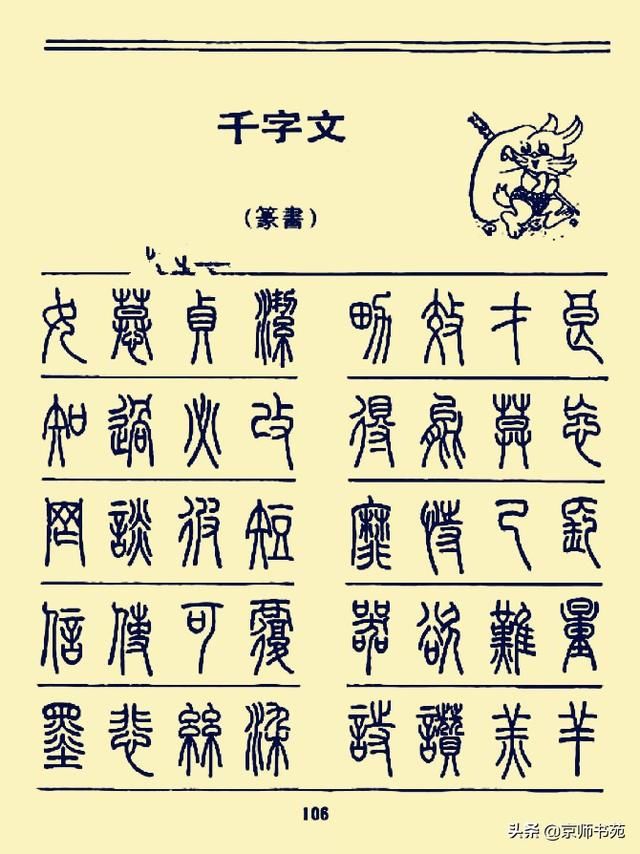 千字文
(篆書)
女慕貞潔 男效才良
知過必改 得能莫忘
罔談彼短 靡恃己長
信使可覆 器欲難量
墨悲絲染 詩讚羔羊
106
头条 @京师书苑